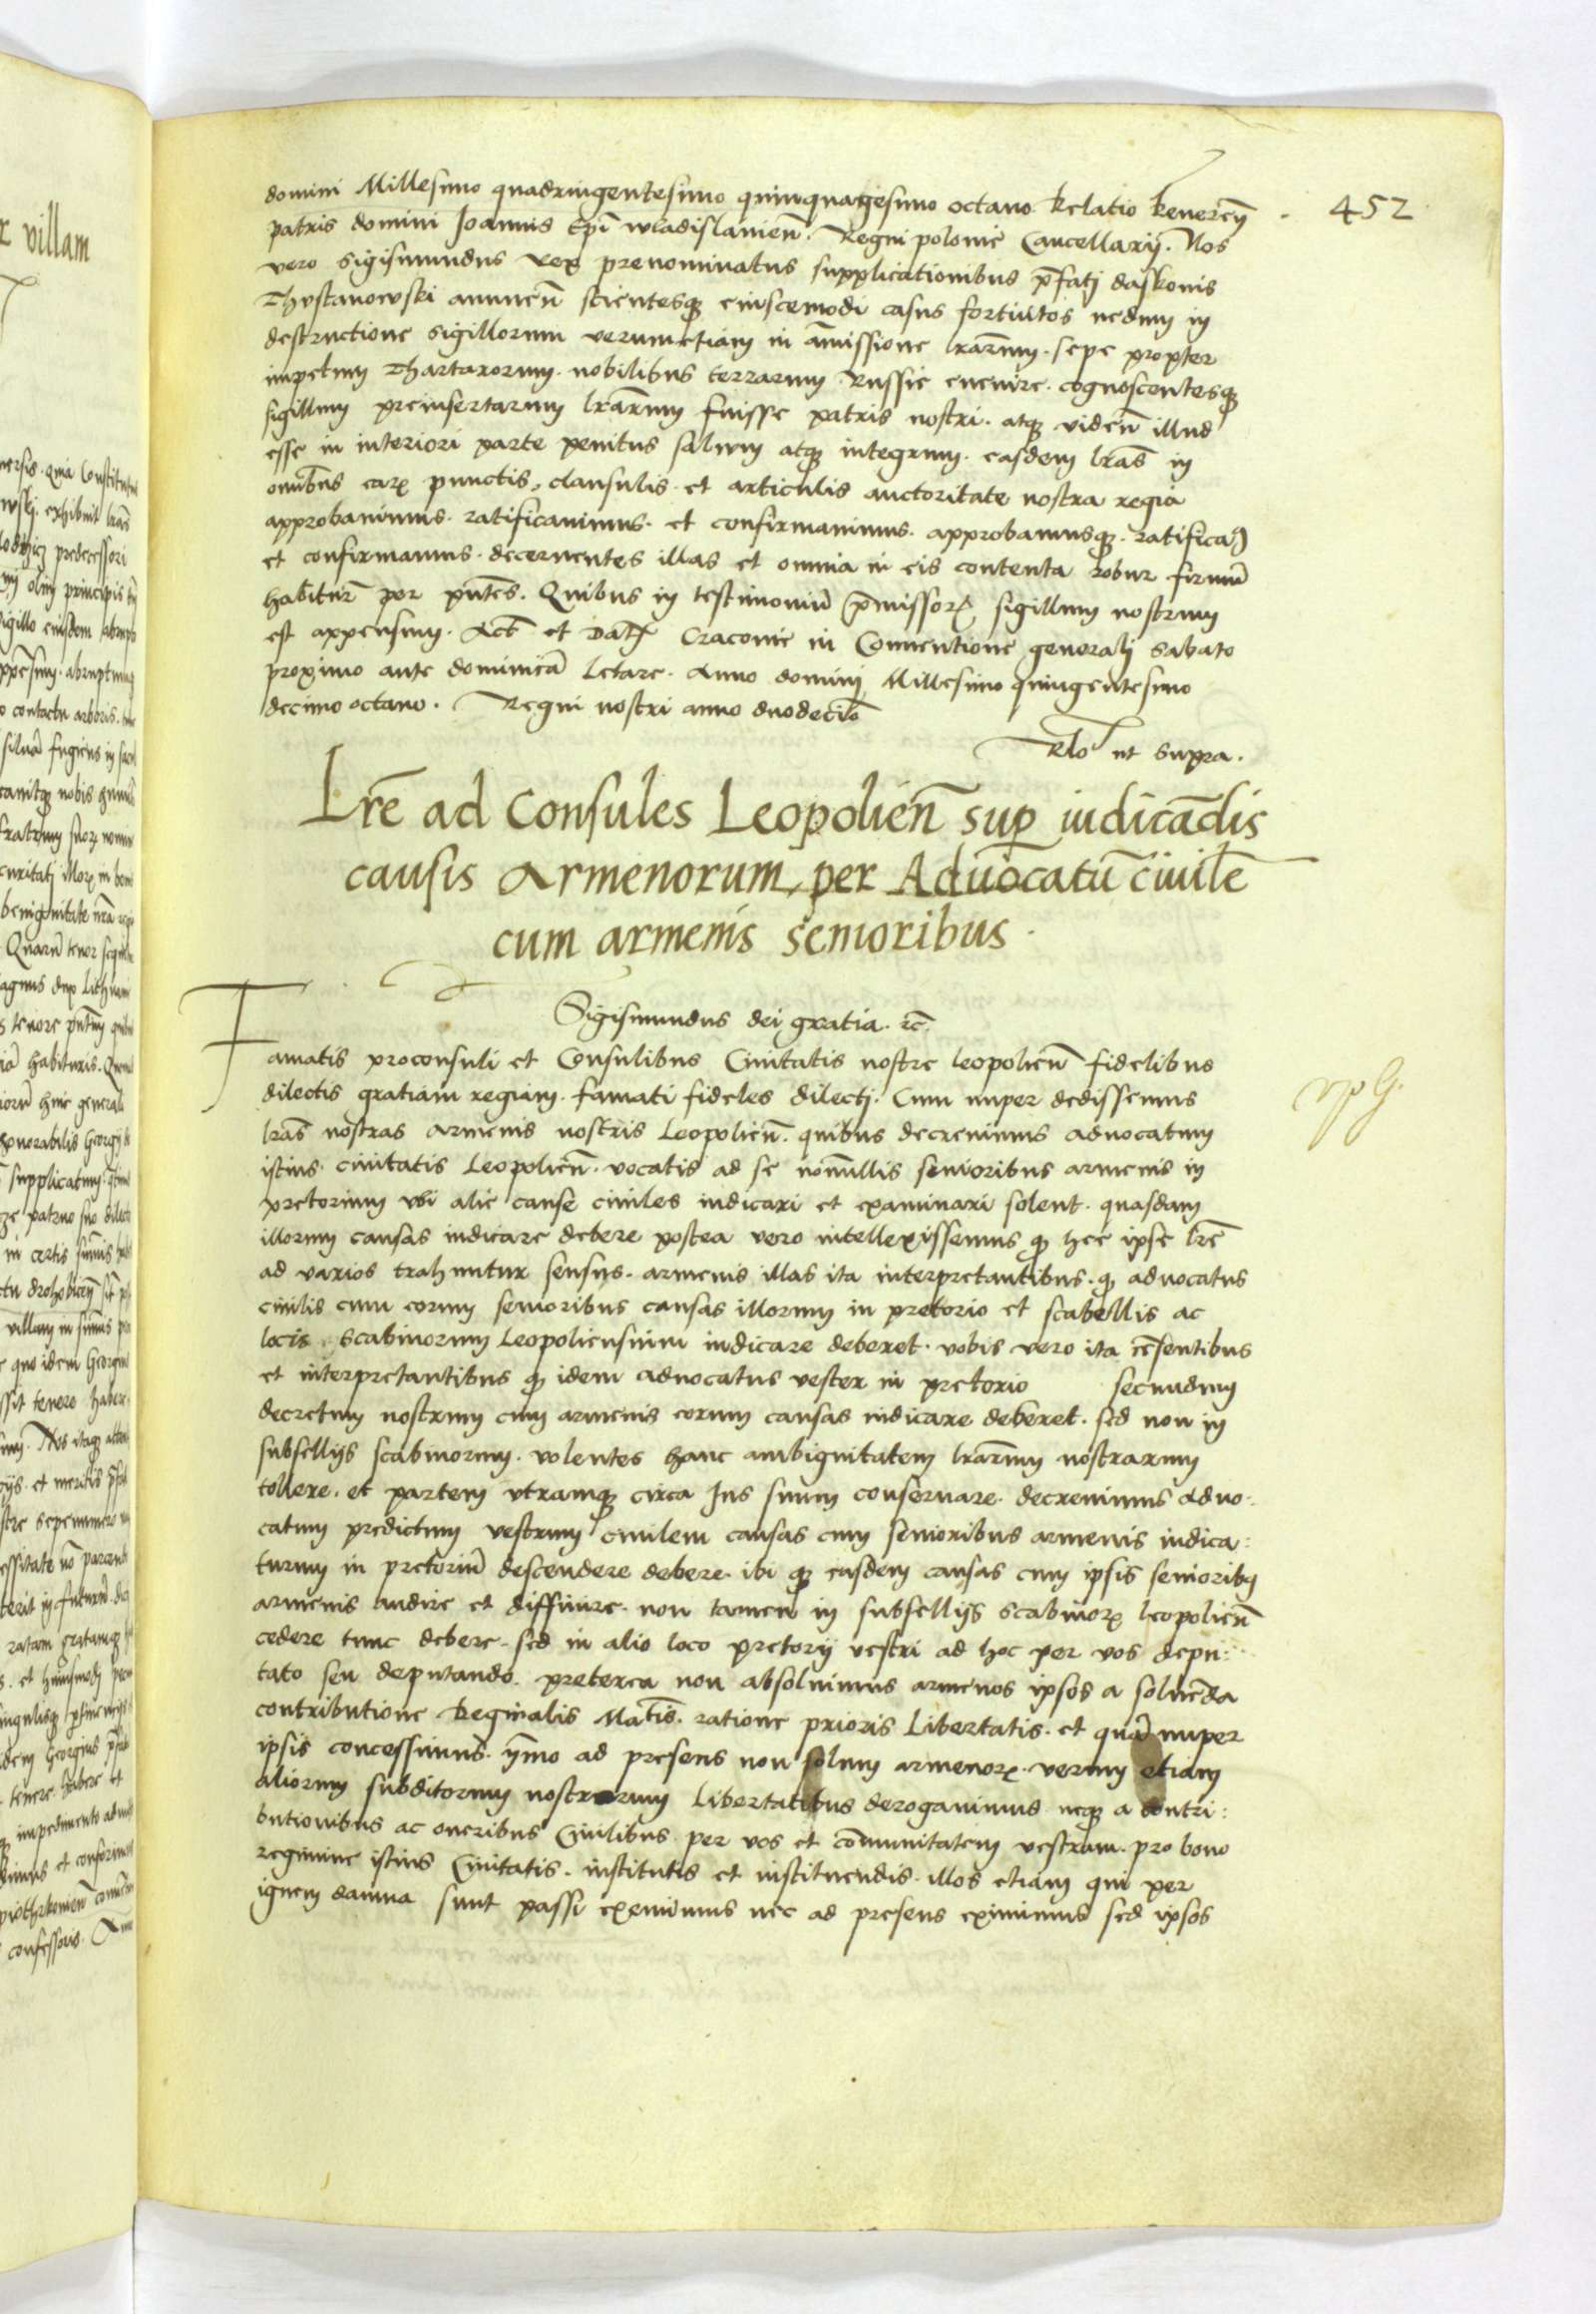 452
domini Millesimo quadringentesimo quinquagesimo octavo Relatio Reueren̄
patris domini Joannis Epī wladislauien̄. Regni polonie Cancellarij. Nos
vero Sigismundus Rex prenominatus supplicationibus p̄fatj daskonis
Thvstanowski annuen̄ scientesq̄ eiuscemodi casus fortuitos nedum in
destructione sigillorum verumetiam in amissione lrārum. sepe propter
impetum Thartarorum. nobilibus terrarum Russie euenire. cognoscentesq̄
sigillum preinsertarum lrārum fuisse patris nostri. atq̄ viden̄ illud
esse in interiori parte penitus saluum atq̄ integrum. easdem lrās in
omībus earꝝ punctis, clausulis et articulis auctoritate nostra regia
approbauimus. ratificauimus. et confirmauimus. approbamusq̄. ratificam̄
et confirmamus. decernentes illas et omnia in eis contenta robur firmū
habitur̄ per pn̄tes. Quibus in testimoniū p̄missorꝝ sigillum nostrum
est appensum. Act̄ et Datꝝ Cracouie in Conuentione generalj Sabato
proximo ante dominicā letare. Anno dominj Millesimo quingentesimo
decimo octauo. Regni nostri anno duodecīo
Rlō ut supra.
Lrē ad Consules Leopolien̄ sup̱ iudicādis
causis Armenorum, per Aduocatū ciuilē
cum armenis senioribus.
Sigismundus dei gratia. rc̄.
Famatis proconsuli et Consulibus Ciuitatis nostre leopolien̄ fidelibus
dilectis gratiam regiam. famati fideles dilectj. Cum nuper dedissemus
lrās nostras armenis nostris Leopolien̄. quibus decreuimus aduocatum
istius ciuitatis Leopolien̄. vocatis ad se nōnullis senioribus armenis in
pretorium vbi alie cause ciuiles iudicari et examinari solent. quasdam
illorum causas iudicare debere postea vero intellexissemus q̄ hec ipse lrē
ad varios trahuntur sensus. armenis illas ita interpretantibus. q̄ aduocatus
ciuilis cum eorum senioribus causas illorum in pretorio et scabellis ac
locis scabinorum Leopoliensium iudicare deberet. vobis vero ita cēsentibus
et interpretantibus q̄ idem aduocatus vester in pretorio secundum
decretum nostrum cum armenis eorum causas iudicare deberet. sed non in
subsellijs scabinorum. volentes hanc ambiguitatem lrārum nostrarum
tollere. et partem vtramq̄ circa Jus suum conseruare. decreuimus aduo:
catum predictum vestrum ciuilem causas cum senioribus armenis iudica:
turum in pretoriū descendere debere. ibi q̄ easdem causas cum ipsis seniorib9
armenis audire et diffinire. non tamen in subsellijs scabinorꝝ leopolien̄
cedere tunc debere. sed in alio loco pretorij vestri ad hoc per vos depu:
tato seu deputando. preterea non absoluimus armenos ipsos a soluēda
contributione Reginalis Mat̄is. ratione prioris Libertatis. et quā nuper
ipsis concessimus. ymo ad presens non solum armenorꝝ. verum etiam
aliorum subditorum nostrorum Libertatibus derogauimus neq̄ a contri:
butionibus ac oneribus Ciuilibus per vos et cōmunitatem vestram. pro bono
regimine istius Ciuitatis. institutis et instituendis. illos etiam qui per
ignem damna sunt passi exemimus nec ad presens eximimus sed ipsos